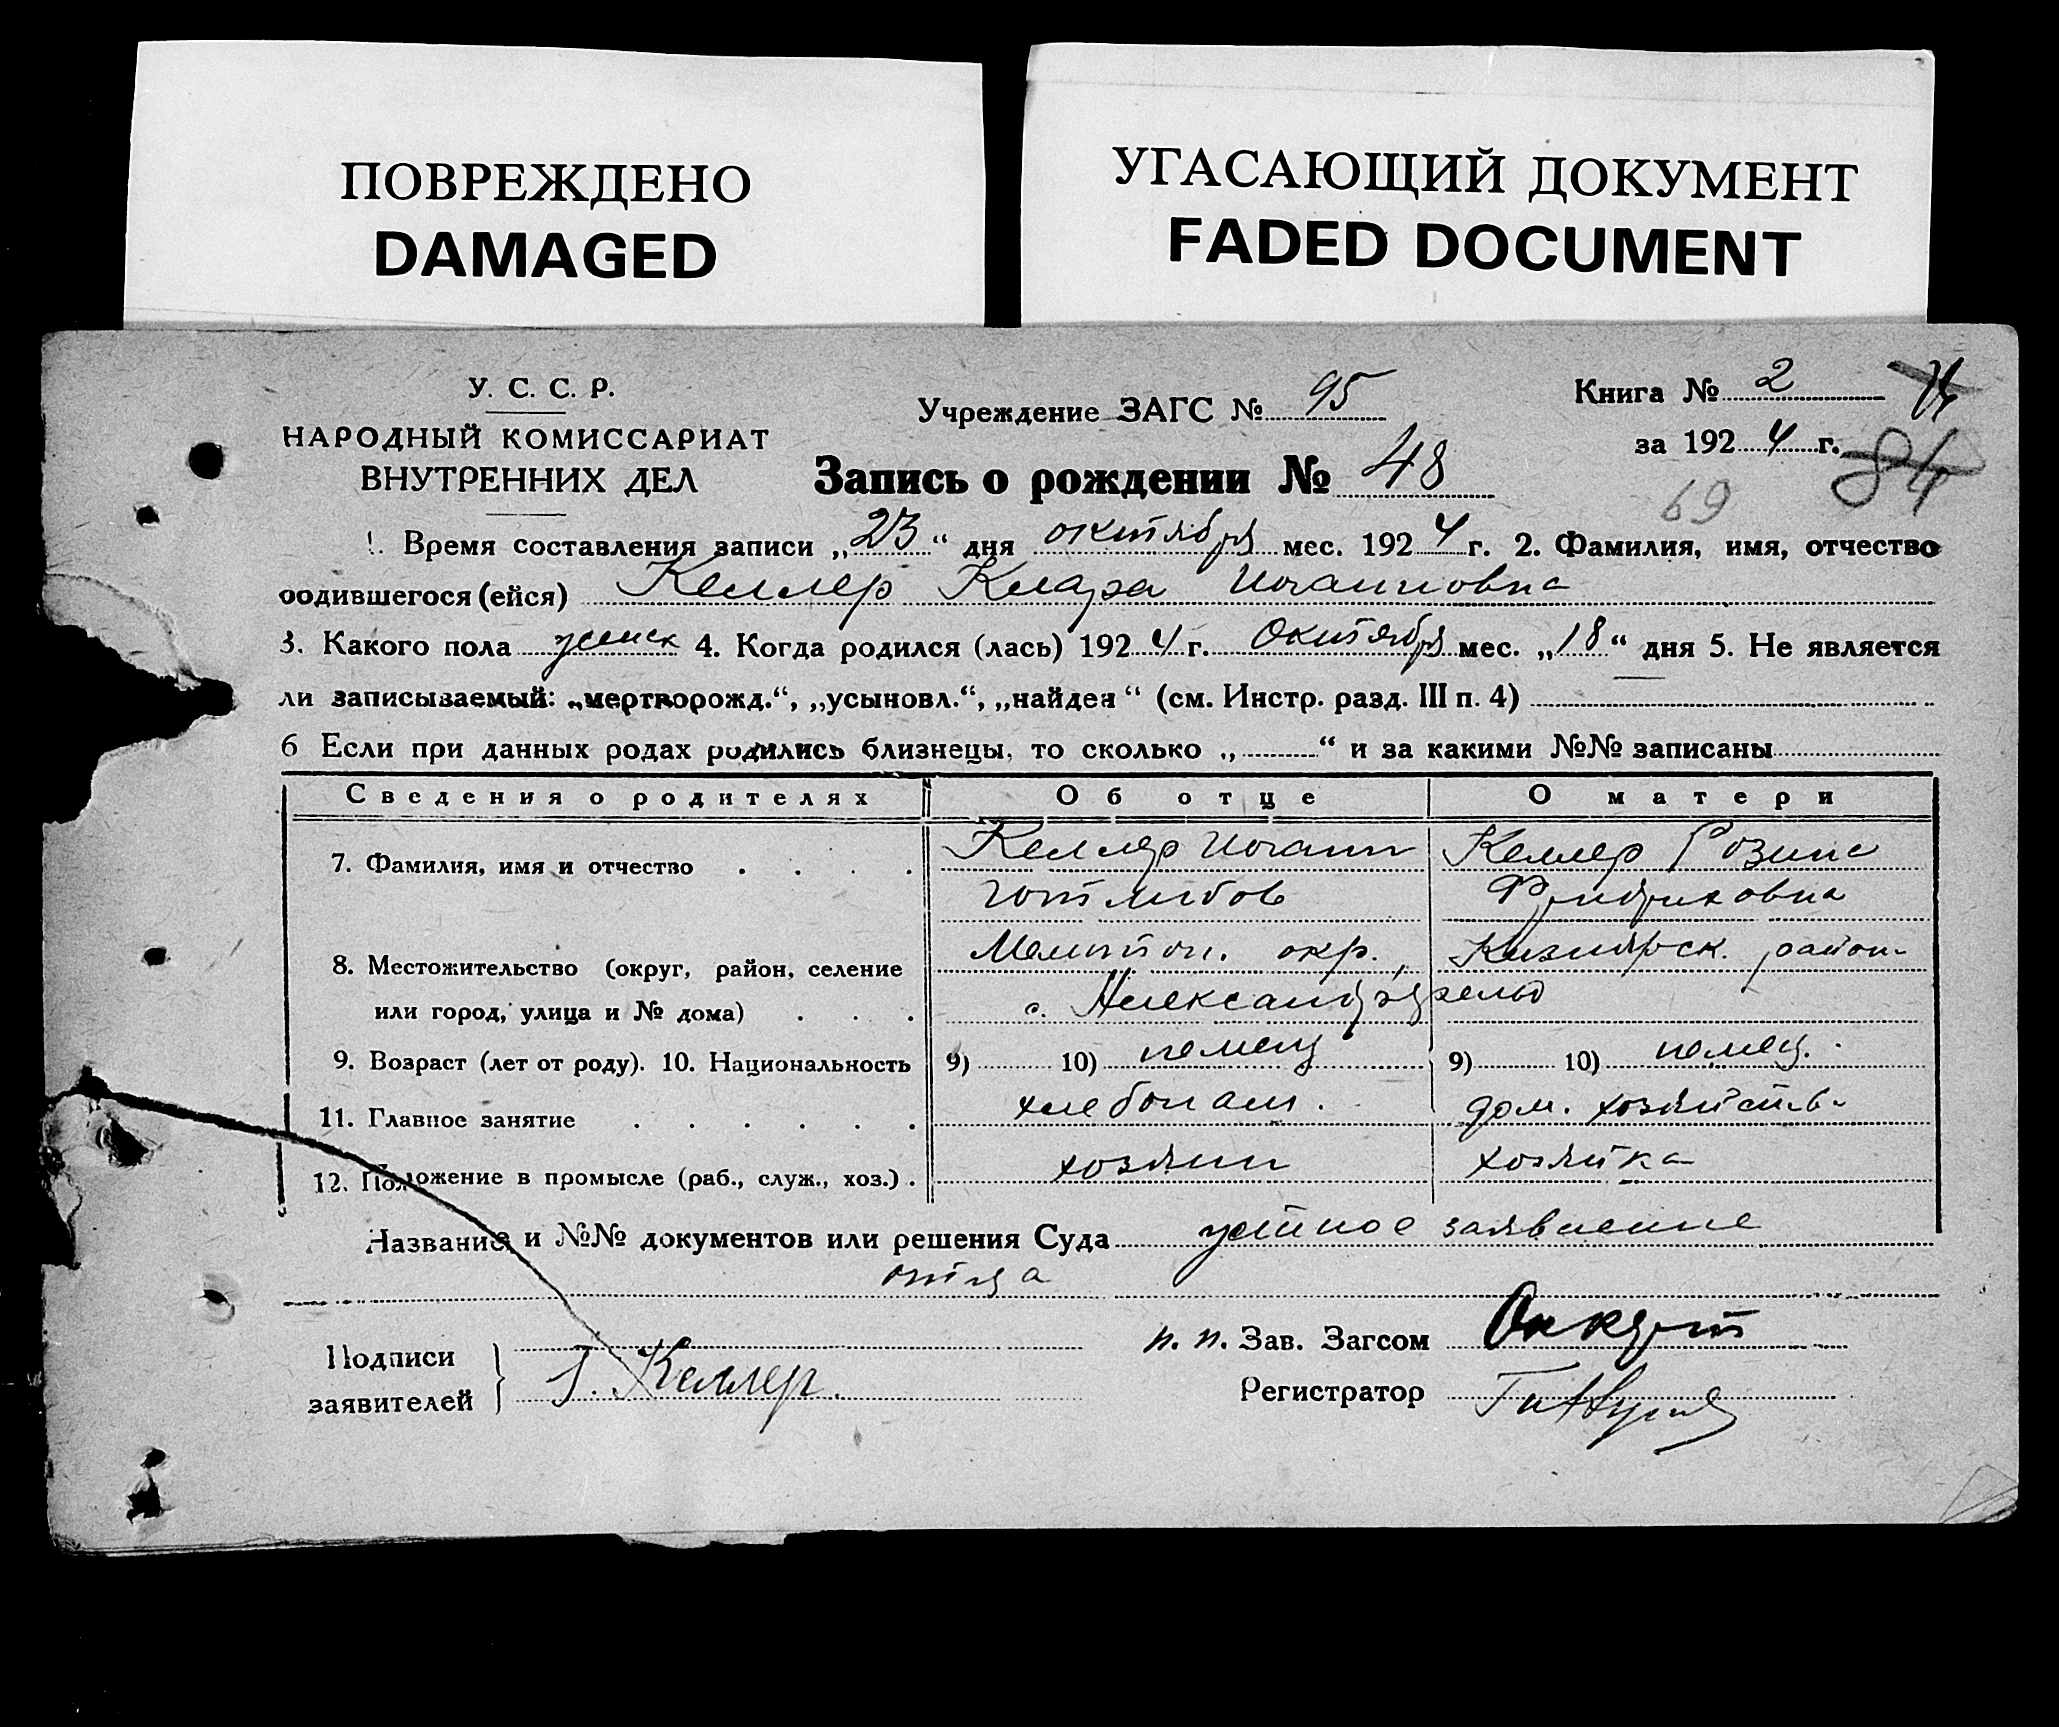 ПОВРЕЖДЕНО
DAMAGED
УГАСАЮЩИЙ ДОКУМЕНТ
FADED DOCUMENT
У. С. С. Р.
НАРОДНЫЙ КОМИССАРИАТ
ВНУТРЕННИХ ДЕЛ
Учреждение ЗАГС № 95
Книга № 2
за 1924 г.
84
69
Запись о рождении № 48
1. Время составления записи „23“ дня октября мес. 1924 г. 2. Фамилия, имя, отчество
родившегося (ейся) Келлер Клара Иоганновна
3. Какого пола женск 4. Когда родился (лась) 1924 г. Октября мес. „18“ дня 5. Не является
ли записываемый: „мертворожд.“, „усыновл.“, „найден“ (см. Инстр. разд. III п. 4)
6 Если при данных родах родились близнецы, то сколько „ “ и за какими №№ записаны
Сведения о родителях Об отце О матери
7. Фамилия, имя и отчество Келлер Иоганн Келлер Розина
Готлибов Фридриховна
8. Местожительство (округ, район, селение Мелитоп. окр., Кизиярск. район
или город, улица и № дома) с. Александрфельд
9. Возраст (лет от роду). 10. Национальность 9) 10) немец 9) 10) немец.
11. Главное занятие хлебопаш. дом. хозяйств.
12. Положение в промысле (раб., служ., хоз.) хозяин хозяйка
Названия и №№ документов или решения Суда устное заявление
отца
Подписи
заявителей
І. Келлер.
п. п. Зав. Загсом
Регистратор